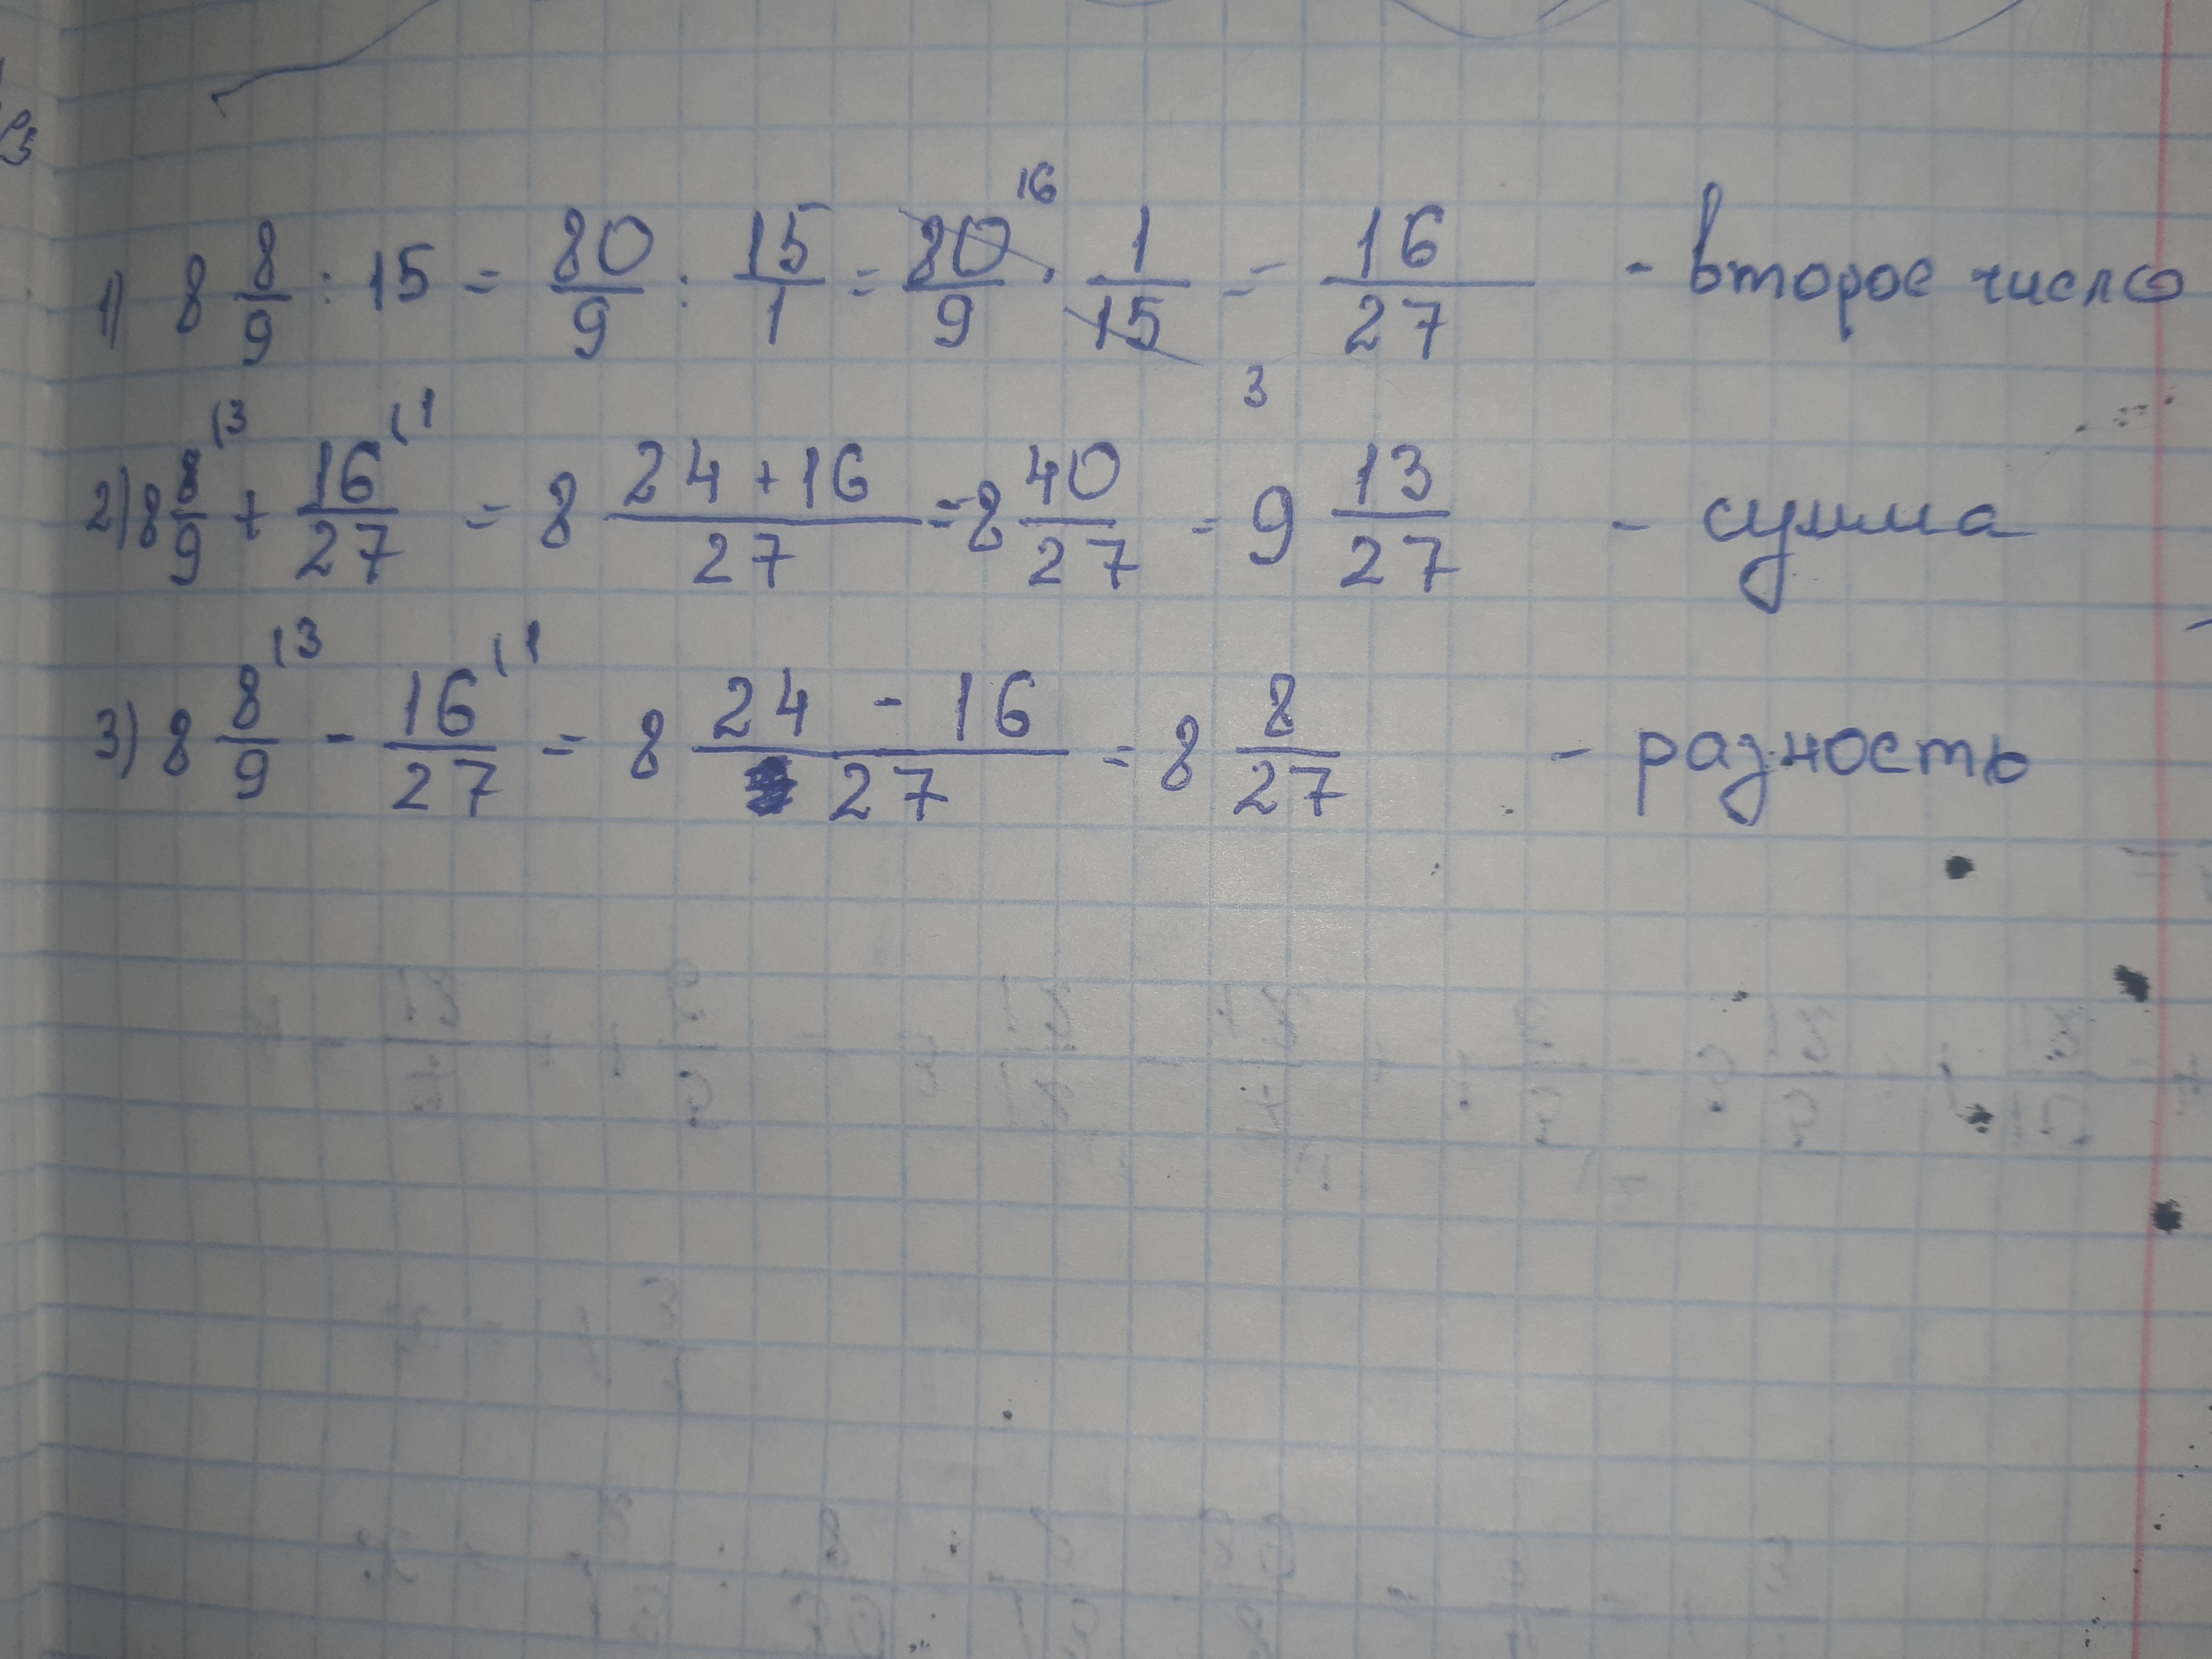 1) 8 8/9 : 15 = 80/9 : 15/1 = 80/9 16 · 1/15 3 = 16/27 - второе число
2) 8 8/9 (3 + 16/27 (1 = 8 24+16/27 = 8 40/27 = 9 13/27 - сумма
3) 8 8/9 (3 - 16/27 (1 = 8 24 - 16/27 = 8 8/27 - разность